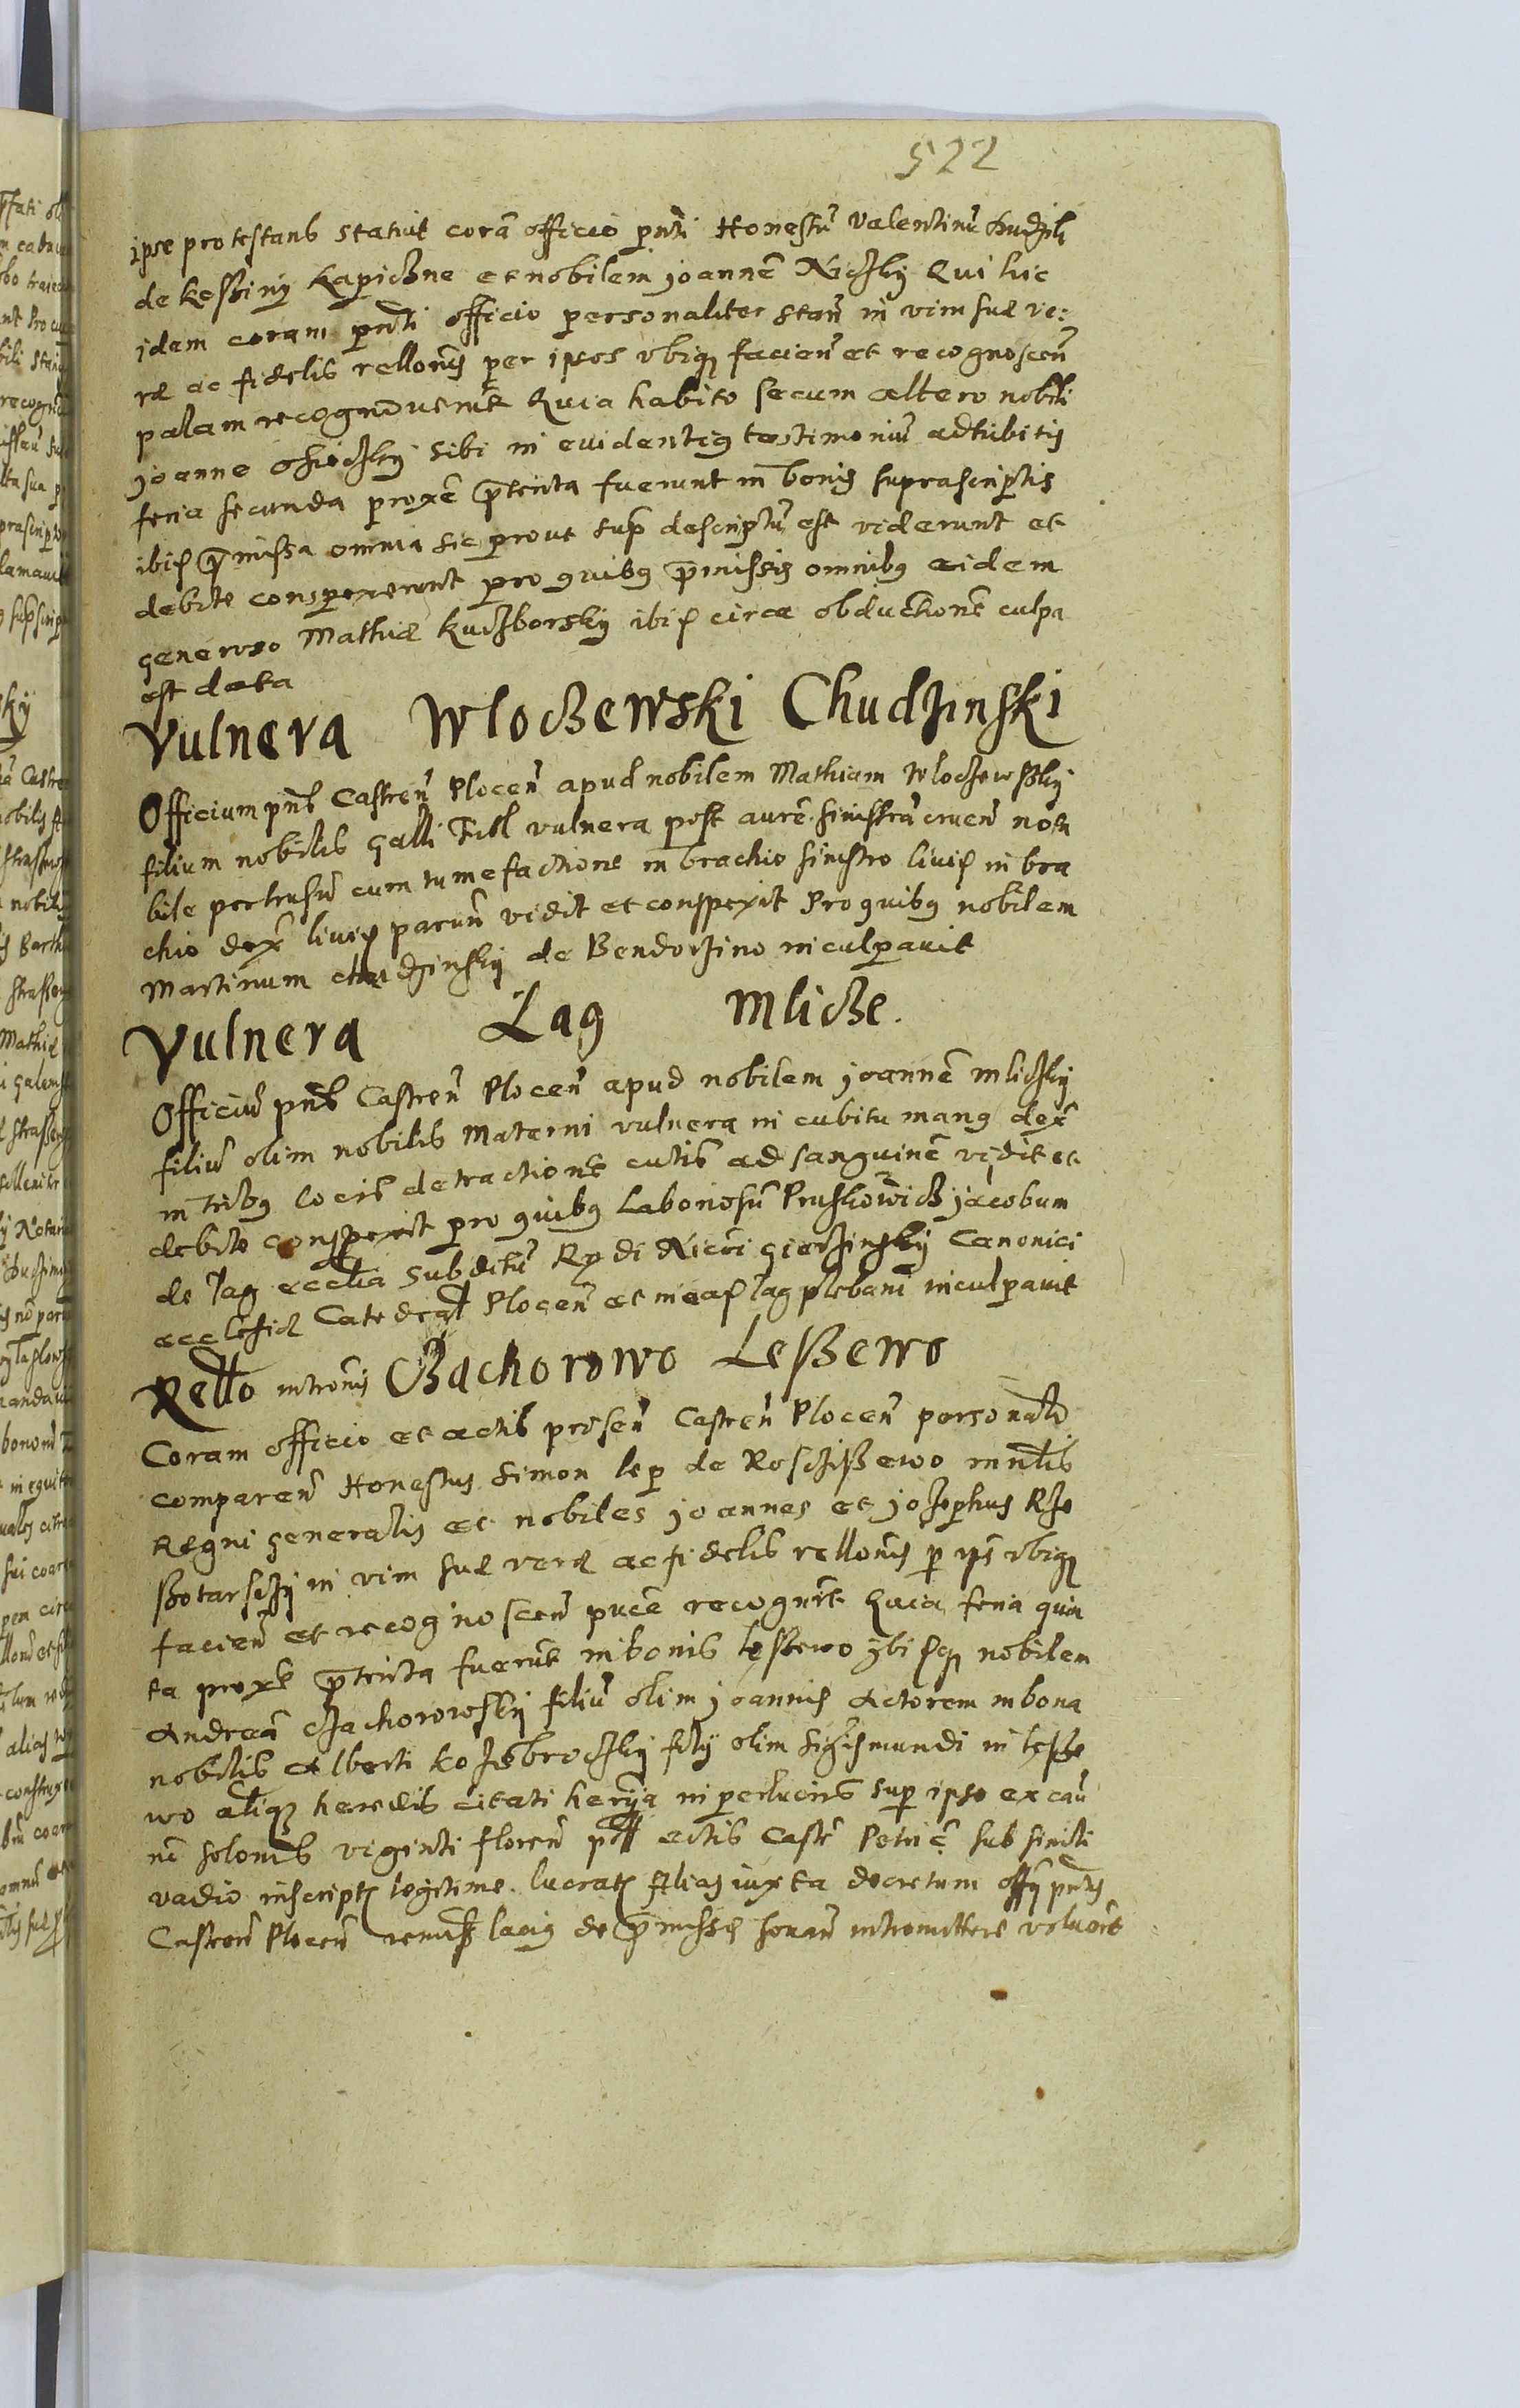 522
ipse protestans statuit corã officio pnti Honestũ Valentinũ
de Keßiny Kapiczne et nobilem Joannẽ Niczky Qui hic
idem coram pnti officio personaliter stan̄ in vim suæ ve:
ræ ac fidelis rellonis per ipsos vbiq facien̄ et recognoscen̄
palam recognoverũt Quia habito secum altero nobili
Joanne sibi in evidentiq testimoniũ adhibitis
feria secunda proxẽ p̄terita fuerunt in bonis suprascriptis
ibiq p̄missa omnia sic prout sup descriptũ est viderunt et
debite conspexerunt pro quibq p̄missis omnibq eidem
generoso Mathiæ Kuczborsky ibiq circa obductionẽ culpa
est data
Vulnera Wloczewski Chudzinski
Officium pn̄s Castren̄ Plocen̄ apud nobilem Mathiam Wloczewsky
filium nobilis Galli vulnera post aurẽ sinistrã cruen̄ nota
bile pertusũ cum tumefactione in brachio sinistro liviq in bra
chio dex̄ liviq parvũ vidit et conspexit Pro quibq nobilem
Martinum chudzinsky de Bendorzino inculpavit
Vulnera Lag Mlicze.
Officiũ pn̄s Castren̄ Plocen̄ apud nobilem Joannẽ mliczky
filiũ olim nobilis Materni vulnera in cubitu manq dex̄
in tribq locis detractione cutis ad sanguinẽ vidit et
debite conspexit pro quibq Laboriosũ Pruskowicz Jacobum
de Lag ecclia subditũ Rndi Nicoi Canonici
ecclesiæ Catedral Plocen̄ et in eaq lag plebani inculpavit
Rello intronis Czachorowo Leßewo
Coram officio et actis presen̄ Castren̄ Plocen̄ personalr
comparen̄ Honestus Simon lep de Roscißewo mntlis
Regni generalis et nobiles Joannes et Josephus Rze
ßotarsczy in vim suæ veræ ac fidelis rellonis p ips vbiq
facien̄ et recognoscen̄ puce recognrt Quia feria quin
ta proxe p̄terita fuerũt in bonis leßewo ibiq nobilem
Andreã czachorowsky filiũ olim Joannis Actorem in bona
nobilis Alberti Kozebroczky fily olim Sigismundi in leße
wo aliq heredis citati in per lucris sup ipso ex cau
nõ solonis viginti floren̄ poll actis Castr̄ sub simili
vadio inscripts legitime lucrats Alias iuxta decretum offy pntis
Castren̄ Plocen̄ laciq de p̄missis sonan̄ intromittere voluert